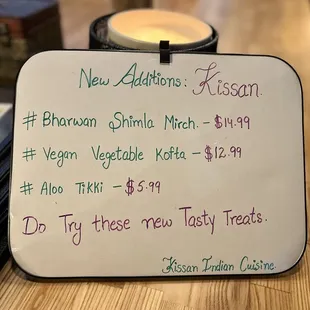 New Additions: Kissan.
# Bharwan Shimla Mirch. - $14.99
# Vegan Vegetable Kofta - $12.99
# Aloo Tikki - $5.99
Do Try these new Tasty Treats.
Kissan Indian Cuisine.